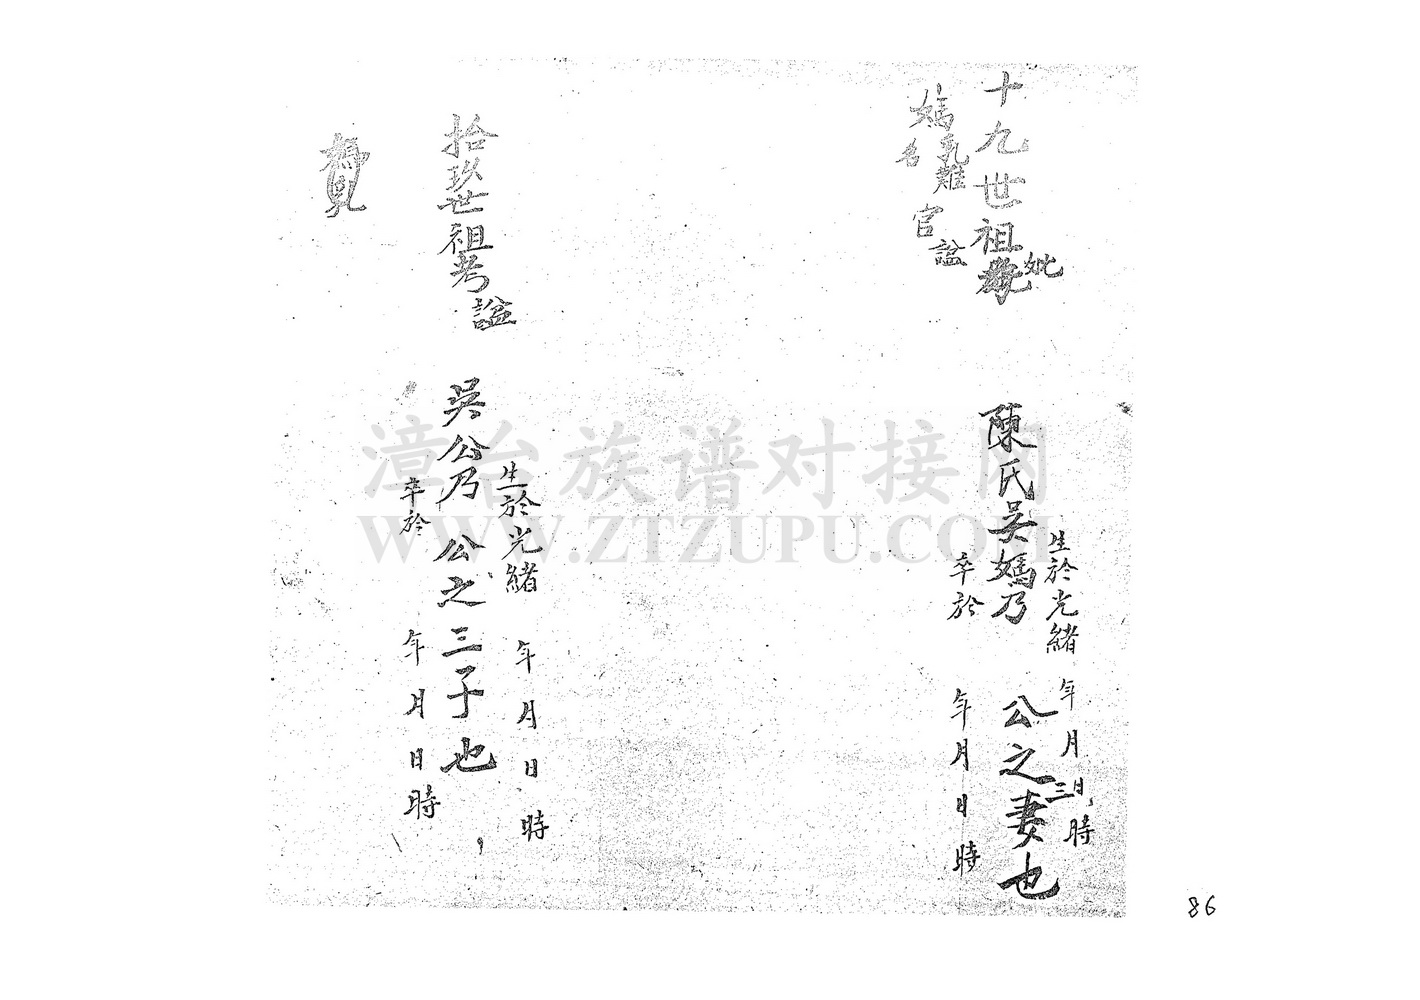 十九世祖妣
媽乳名難官諡
陳氏吳媽乃 公之妻也
生於光緒 年 月三日時
卒於 年 月 日 時
拾玖世祖考諡
吳公乃 公之三子也
生於光緒 年 月 日 時
卒於 年 月 日 時
漳台族谱对接网
WWW.ZTZUPU.COM
86